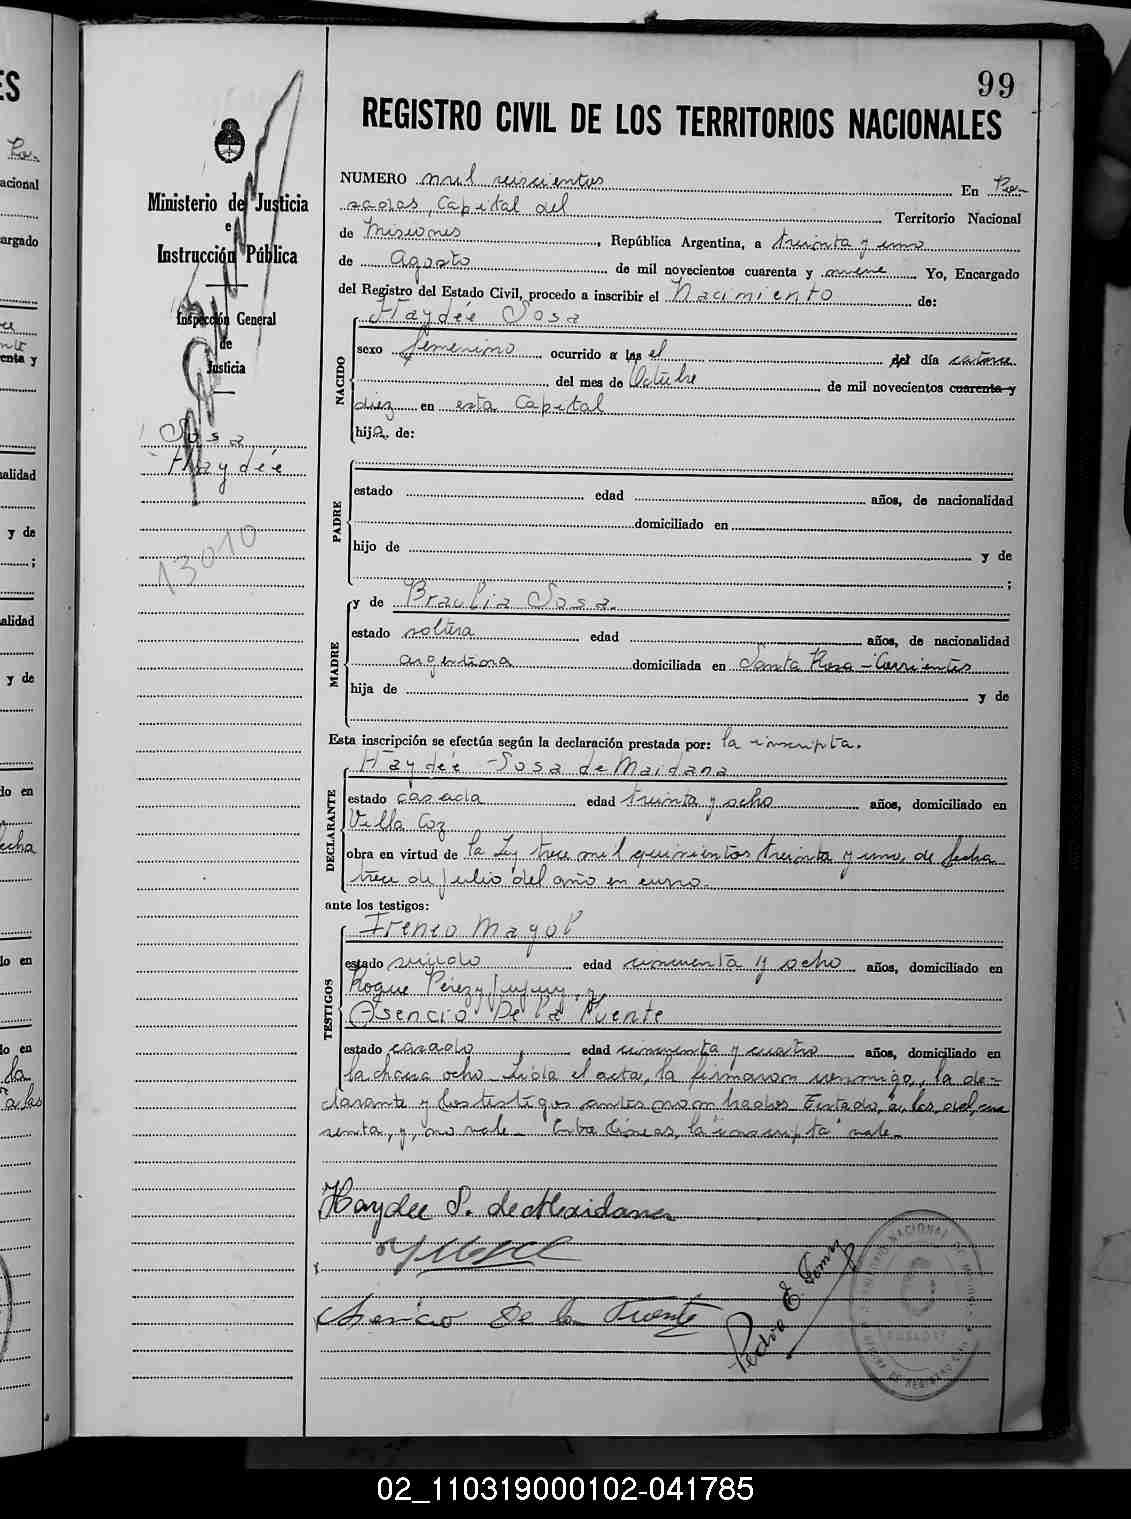 99
REGISTRO CIVIL DE LOS TERRITORIOS NACIONALES
Ministerio de Justicia
e
Instrucción Pública
Inspección General
de
Justicia
Sosa
Haydée
13010
NUMERO mil seiscientos En Po-
sadas, Capital del Territorio Nacional
de Misiones, República Argentina, a treinta y uno
de Agosto de mil novecientos cuarenta y nueve Yo, Encargado
del Registro del Estado Civil, procedo a inscribir el Nacimiento de:
NACIDO
Haydée Sosa
sexo femenino ocurrido a las el del día catorce
del mes de Octubre de mil novecientos cuarenta y
diez en esta Capital
hija de:
PADRE
estado edad años, de nacionalidad
domiciliado en
hijo de y de
;
MADRE
y de Braulia Sosa.
estado soltera edad años, de nacionalidad
argentina domiciliada en Santa Rosa - Corrientes
hija de y de
Esta inscripción se efectúa según la declaración prestada por: la inscripta.
DECLARANTE
Haydée Sosa de Maidana
estado casada edad treinta y ocho años, domiciliado en
Villa Coz
obra en virtud de la Ley trece mil quinientos treinta y uno, de fecha
trece de julio del año en curso.
ante los testigos:
TESTIGOS
Ireneo Magol
estado viudo edad cincuenta y ocho años, domiciliado en
Roque Pérez y Jujuy, y
Asencio De la Fuente
estado casado edad cincuenta y cuatro años, domiciliado en
la chacra ocho. Leída el acta, la firmaron conmigo, la de-
clarante y los testigos antes nombrados. Testado, a, las, del, cua
renta, y, no vale. Entre líneas, la "inscripta" vale.
Haydee S. de Maidana
Asencio De la Fuente
Pedro E.
02_110319000102-041785